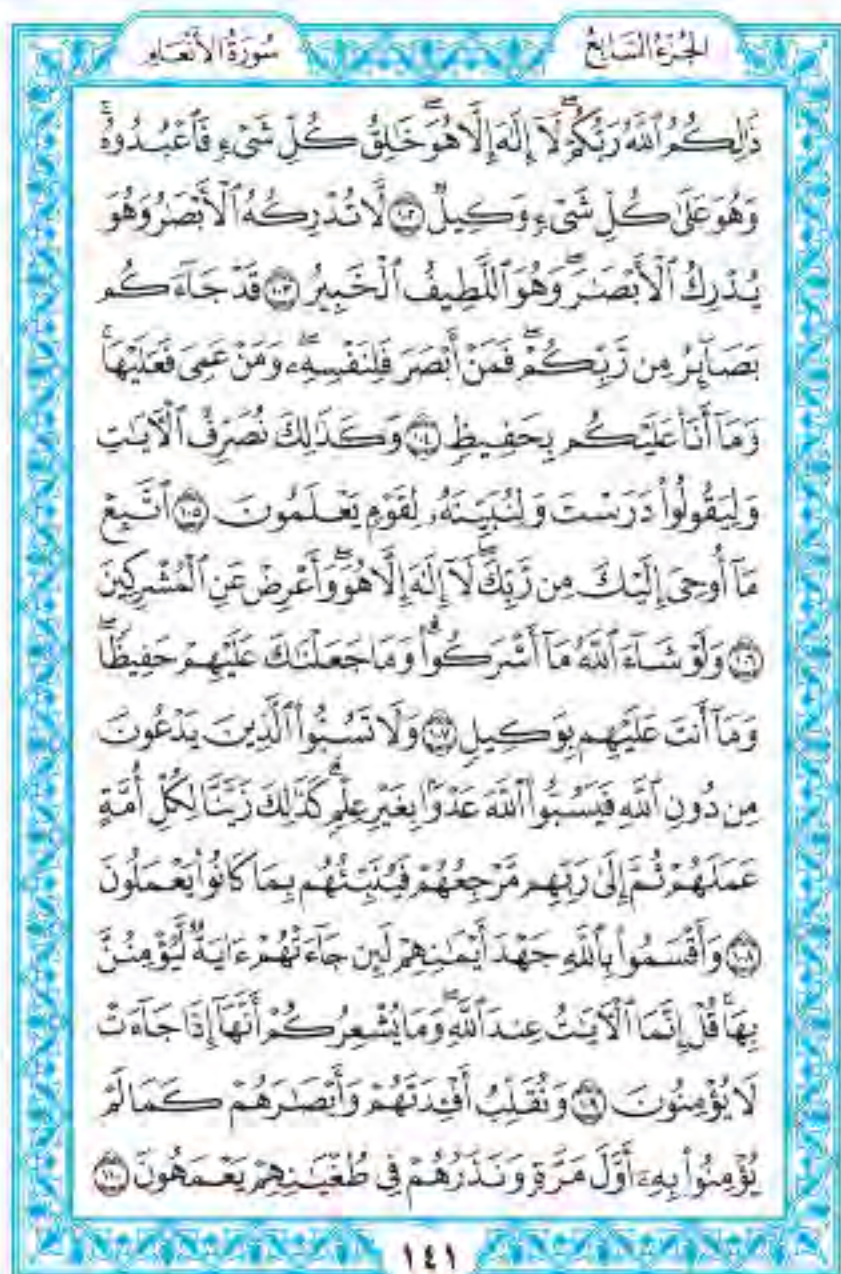 الجُزْءُ السَّابِعُ
سُورَةُ الأَنْعَامِ
ذَٰلِكُمُ ٱللَّهُ رَبُّكُمْۖ لَآ إِلَٰهَ إِلَّا هُوَۖ خَٰلِقُ كُلِّ شَىْءٍ فَٱعْبُدُوهُۚ
وَهُوَ عَلَىٰ كُلِّ شَىْءٍ وَكِيلٌ ١٠٢ لَّا تُدْرِكُهُ ٱلْأَبْصَٰرُ وَهُوَ
يُدْرِكُ ٱلْأَبْصَٰرَۖ وَهُوَ ٱللَّطِيفُ ٱلْخَبِيرُ ١٠٣ قَدْ جَآءَكُم
بَصَآئِرُ مِن رَّبِّكُمْۖ فَمَنْ أَبْصَرَ فَلِنَفْسِهِۦۖ وَمَنْ عَمِىَ فَعَلَيْهَاۚ
وَمَآ أَنَا۠ عَلَيْكُم بِحَفِيظٍ ١٠٤ وَكَذَٰلِكَ نُصَرِّفُ ٱلْءَايَٰتِ
وَلِيَقُولُوا۟ دَرَسْتَ وَلِنُبَيِّنَهُۥ لِقَوْمٍ يَعْلَمُونَ ١٠٥ ٱتَّبِعْ
مَآ أُوحِىَ إِلَيْكَ مِن رَّبِّكَۖ لَآ إِلَٰهَ إِلَّا هُوَۖ وَأَعْرِضْ عَنِ ٱلْمُشْرِكِينَ
١٠٦ وَلَوْ شَآءَ ٱللَّهُ مَآ أَشْرَكُوا۟ۗ وَمَا جَعَلْنَٰكَ عَلَيْهِمْ حَفِيظًاۖ
وَمَآ أَنتَ عَلَيْهِم بِوَكِيلٍ ١٠٧ وَلَا تَسُبُّوا۟ ٱلَّذِينَ يَدْعُونَ
مِن دُونِ ٱللَّهِ فَيَسُبُّوا۟ ٱللَّهَ عَدْوًۢا بِغَيْرِ عِلْمٍۗ كَذَٰلِكَ زَيَّنَّا لِكُلِّ أُمَّةٍ
عَمَلَهُمْ ثُمَّ إِلَىٰ رَبِّهِم مَّرْجِعُهُمْ فَيُنَبِّئُهُم بِمَا كَانُوا۟ يَعْمَلُونَ
١٠٨ وَأَقْسَمُوا۟ بِٱللَّهِ جَهْدَ أَيْمَٰنِهِمْ لَئِن جَآءَتْهُمْ ءَايَةٌ لَّيُؤْمِنُنَّ
بِهَاۚ قُلْ إِنَّمَا ٱلْءَايَٰتُ عِندَ ٱللَّهِۖ وَمَا يُشْعِرُكُمْ أَنَّهَآ إِذَا جَآءَتْ
لَا يُؤْمِنُونَ ١٠٩ وَنُقَلِّبُ أَفْـِٔدَتَهُمْ وَأَبْصَٰرَهُمْ كَمَا لَمْ
يُؤْمِنُوا۟ بِهِۦٓ أَوَّلَ مَرَّةٍ وَنَذَرُهُمْ فِى طُغْيَٰنِهِمْ يَعْمَهُونَ ١١٠
١٤١